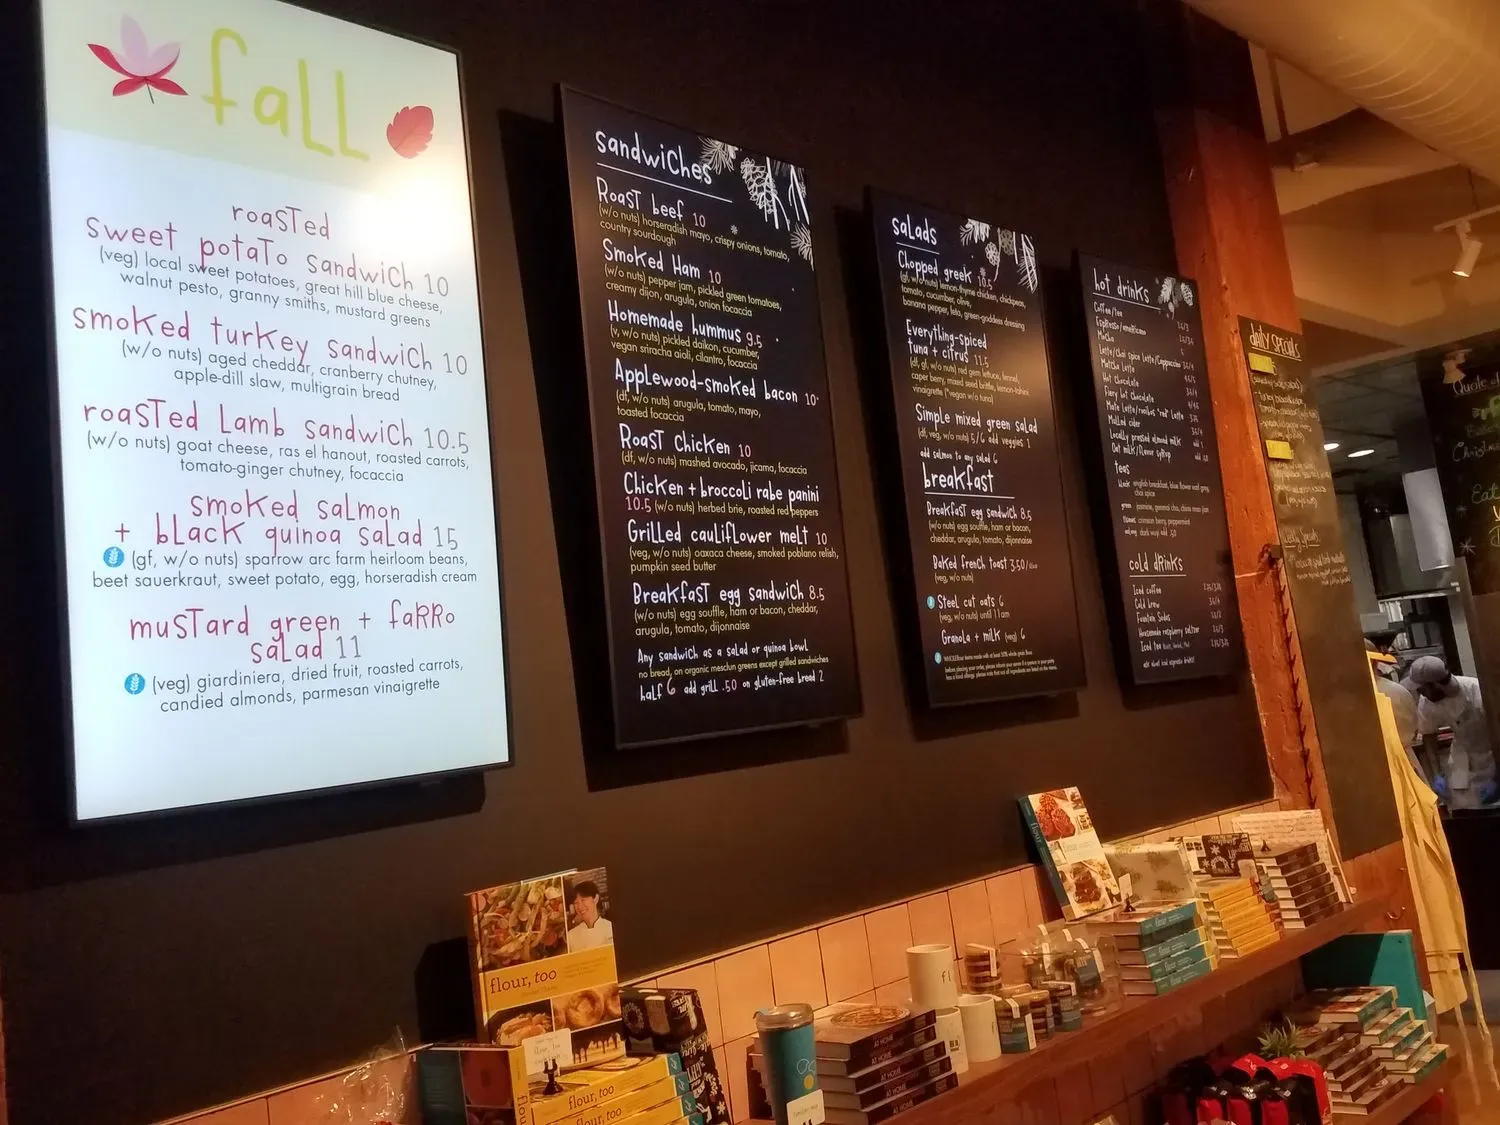 fall
roasted
sweet potato sandwich 10
(veg) local sweet potatoes, great hill blue cheese,
walnut pesto, granny smiths, mustard greens
smoked turkey sandwich 10
(w/o nuts) aged cheddar, cranberry chutney,
apple-dill slaw, multigrain bread
roasted lamb sandwich 10.5
(w/o nuts) goat cheese, ras el hanout, roasted carrots,
tomato-ginger chutney, focaccia
smoked salmon
+ black quinoa salad 15
(gf, w/o nuts) sparrow arc farm heirloom beans,
beet sauerkraut, sweet potato, egg, horseradish cream
mustard green + farro
salad 11
(veg) giardiniera, dried fruit, roasted carrots,
candied almonds, parmesan vinaigrette
sandwiches
Roast beef 10
(w/o nuts) horseradish mayo, crispy onions, tomato,
country sourdough
Smoked Ham 10
(w/o nuts) pepper jam, pickled green tomatoes,
creamy dijon, arugula, onion focaccia
Homemade hummus 9.5
(v, w/o nuts) pickled daikon, cucumber,
vegan sriracha aioli, cilantro, focaccia
Applewood-smoked bacon 10
(df, w/o nuts) arugula, tomato, mayo,
toasted focaccia
Roast Chicken 10
(df, w/o nuts) mashed avocado, jicama, focaccia
Chicken + broccoli rabe panini
10.5 (w/o nuts) herbed brie, roasted red peppers
Grilled cauliflower melt 10
(veg, w/o nuts) oaxaca cheese, smoked poblano relish,
pumpkin seed butter
Breakfast egg sandwich 8.5
(w/o nuts) egg souffle, ham or bacon, cheddar,
arugula, tomato, dijonnaise
Any sandwich as a salad or quinoa bowl
no bread, on organic mesclun greens except grilled sandwiches
half 6 add grill .50 on gluten-free bread 2
salads
Chopped greek 10.5
(gf, w/o nuts) lemon-thyme chicken, chickpeas,
tomato, cucumber, olive,
banana pepper, feta, green-goddess dressing
Everything-spiced
tuna + citrus 11.5
(df, gf, w/o nuts) red gem lettuce, fennel,
caper berry, mixed seed brittle, lemon-tahini
vinaigrette (*vegan w/o tuna)
Simple mixed green salad
(df, veg, w/o nuts) 5/6 add veggies 1
add salmon to any salad 6
breakfast
Breakfast egg sandwich 8.5
(w/o nuts) egg souffle, ham or bacon,
cheddar, arugula, tomato, dijonnaise
Baked french toast 3.50
(veg, w/o nuts)
Steel cut oats 6
(veg, w/o nuts) until 11am
Granola + milk (veg) 6
hot drinks
Coffee/tea
Espresso/americano
Mocha
Latte/chai spice latte/Cappuccino
Matcha Latte
Hot Chocolate
Fiery hot Chocolate
Mate Latte/rooibos "red" Latte
Mulled cider
Locally pressed almond milk
Oat milk/flavor syrup
teas
black english breakfast, blue flower earl grey,
chai spice
cold drinks
Iced coffee
Cold brew
Fountain Sodas
Homemade raspberry seltzer
Iced tea
daily specials
Quote of
Christmas
Eat
flour, too
flour, too
AT HOME
AT HOME
AT HOME
AT HOME
fl
flour